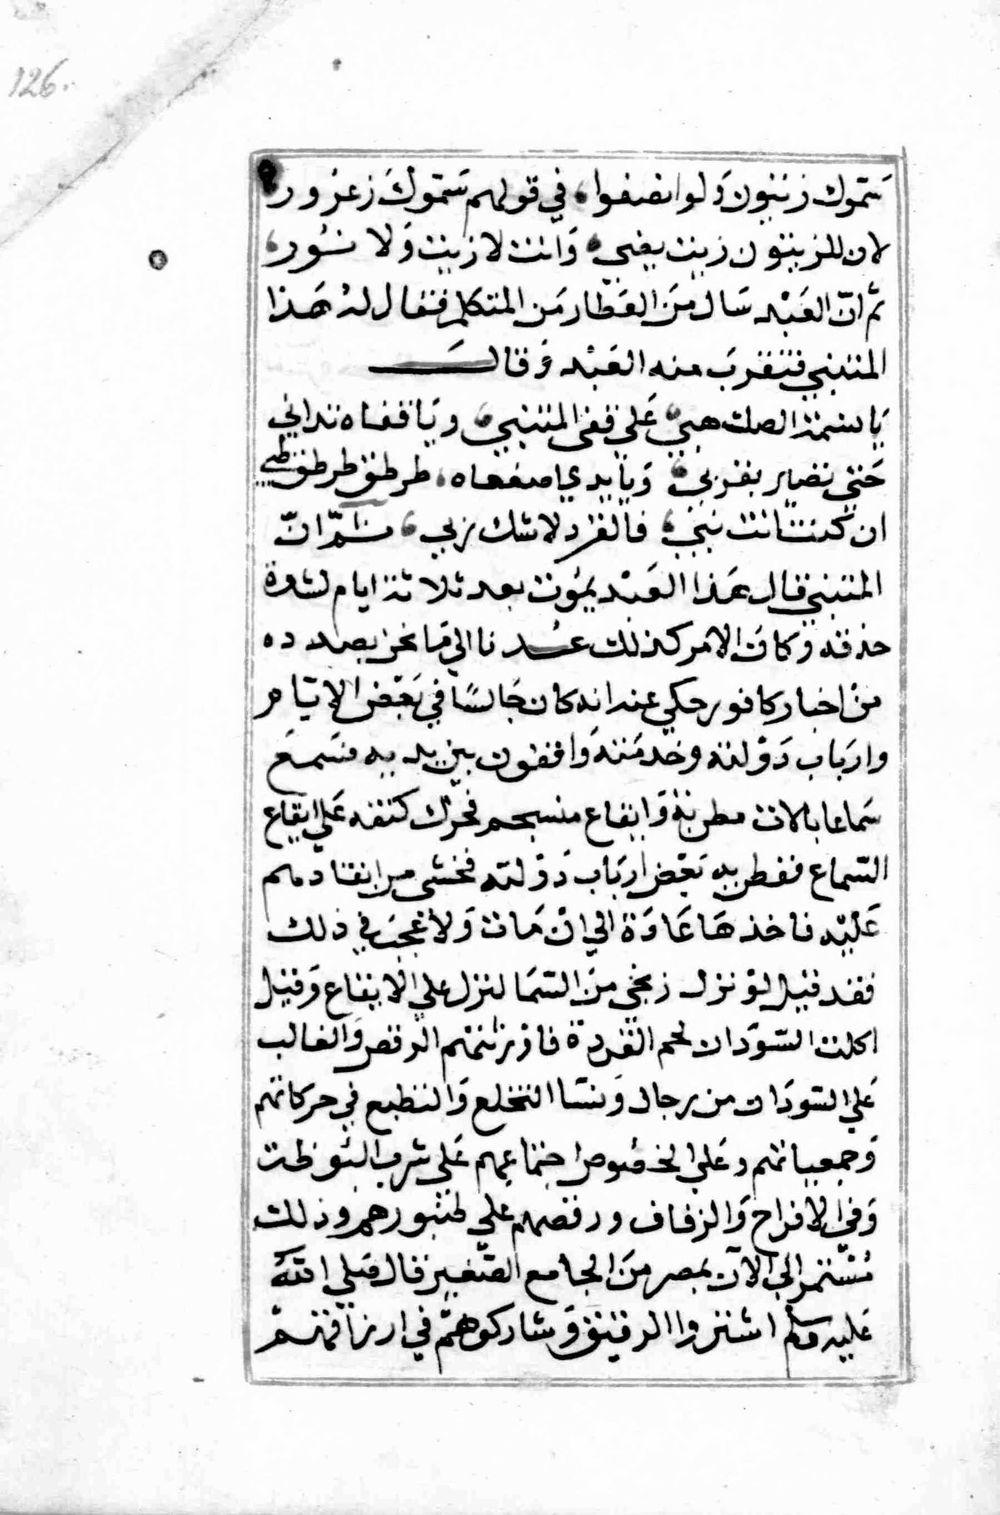 126.
سَمّوك زيتون وَلو انصفوا، في قولهم سَمّوكَ زعرور
لان للزيتون زيت يضيء وَانت لا زيت وَلا نُور
ثم انّ العَبْد سَال منَ العَطّار مَن المتكلم فقال لهُ هَذا
المتنبي فتقرب منه العَبْد وَقال
يَا نسمة الصلت هبي، عَلي قفي المتنبي، ويَا قفاه تداني
حَتي تصير بقربي، وَيا يدي اصفعاه، طرطق طرطق طبي
ان كنت انت نبي، فالقرد لا شك ربي، ثم انّ
المتنبي قال هَذا العَبْد يمُوت بعد ثلاثة ايام لشدة
حذقه وكانَ الامر كذلك عُدنا الي مَا نحن بصدده
منْ اخبار كافور حكي عنه انه كان جَالسًا في بَعْض الايّام
واربَاب دَوْلته وخدمته وَاقفون بين يديه فسَمعَ
سَماعا بالات مطربة وَايقاع منسجم فحرّك كتفه عَلي ايقاع
السّماع ففطن به بَعْض اربَاب دَوْلته فخشي من انتقادهم
عَلَيْه فاخذهَا عَادَة الي انْ مَات وَلا عجبَ في ذلك
فقد قيل لوْ نزل زنجي منَ السّمَا لنزل علي الايقاع وَقيل
اكلت السّودَان لحم القردة فاورثتهم الرقص وَالغالب
عَلي السّودَان من رجال وَنسَا التخلع وَالتطبع في حركاتهم
وَجمعياتهم وعَلي الخصُوص اجتماعهم عَلي شرب البُوظت
وَفي الافراح وَالزفاف ورقصهم علي طنبورهم وذلك
مُسْتمر الي الآن بمصر منَ الجامع الصّغير قال صَلي الله
عَليه وَسلم اشتروا الرقيق وَشاركوهمّ في ارزاقهمْ